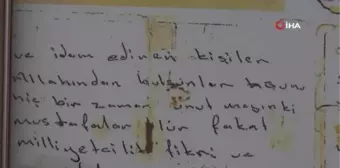 İHA
ve idam edinen kişiler
Allahından bulsunlar
hiç bir zaman unutmasınki
mustafalar ölür fakat
milliyetcilik fikri ve